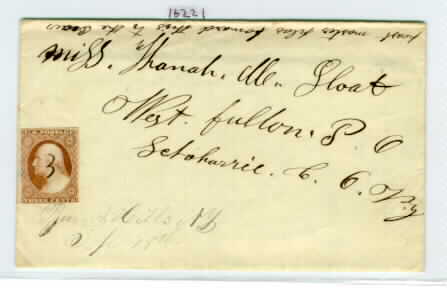 16221
post master please forward this to the
miss. Hanah. M. Sloat
West. fulton. P. O
Schoharrie. C. O. N.y
U.S. POSTAGE
3
THREE CENTS
Hills NY